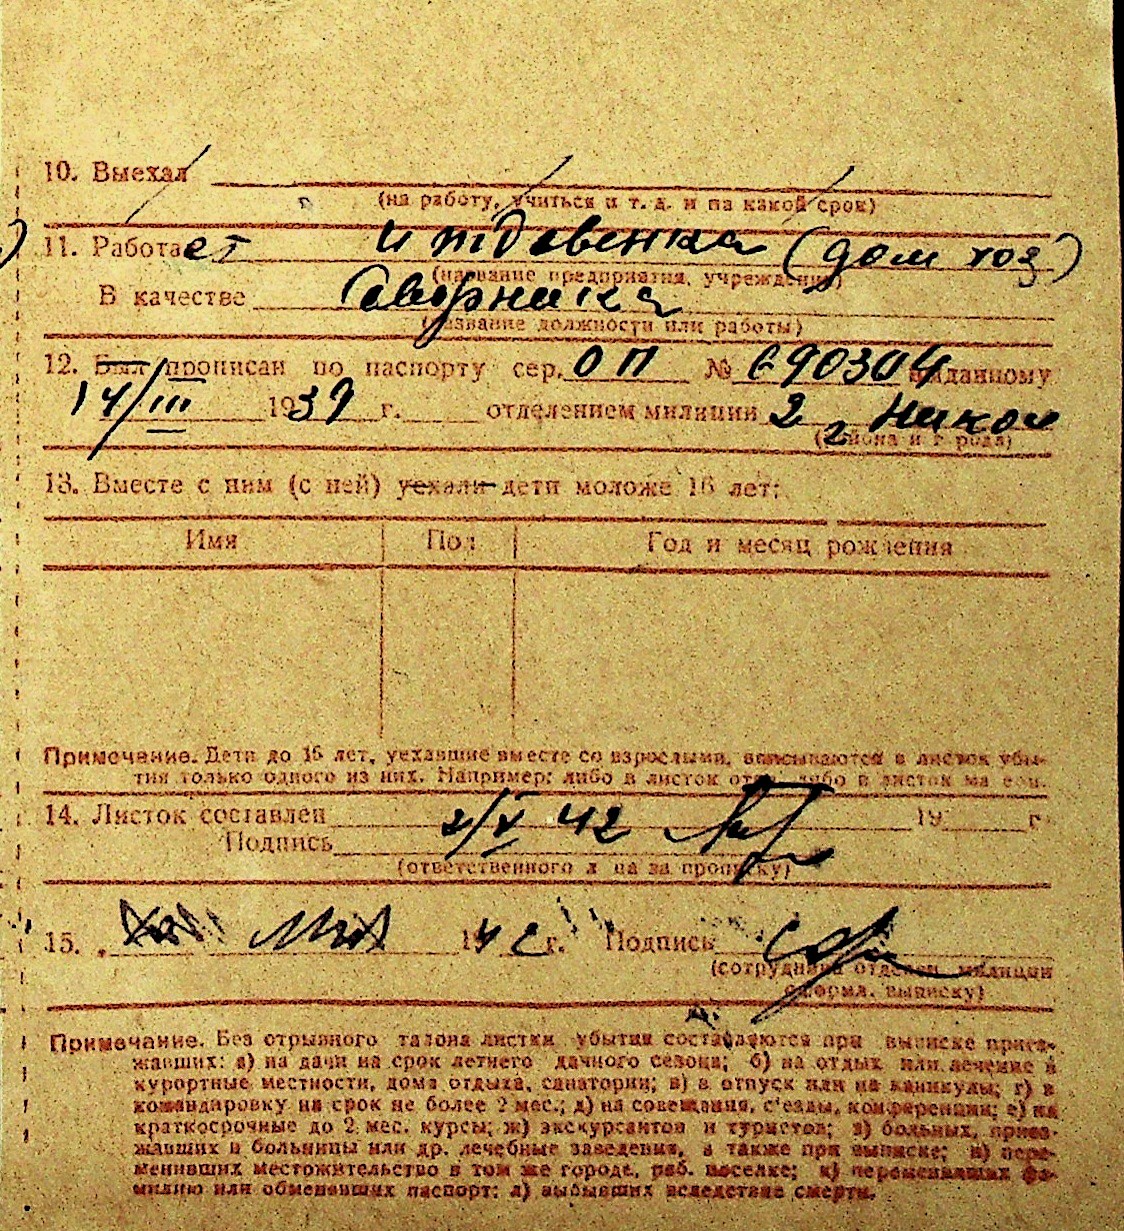 10. Выехал
(на работу, учиться и т. д. и на какой срок)
11. Работает иждивенка (дом хоз)
(название предприятия, учреждения)
В качестве
(название должности или работы)
12. Был прописан по паспорту сер. ОП № 690304 выданному
14/III 1939 г. отделением милиции 2 г. Никол
(района и города)
13. Вместе с ним (с ней) уехали дети моложе 16 лет:
Имя Пол Год и месяц рождения
Примечание. Дети до 16 лет, уехавшие вместе со взрослыми, вписываются в листок убы-
тия только одного из них. Например: либо в листок отца, либо в листок матери.
14. Листок составлен 2/V 42 19 г.
Подпись
(ответственного лица за прописку)
15. " мая 1942 г. Подпись
(сотрудника отделен. милиции
оформл. выписку)
Примечание. Без отрывного талона листки убытия составляются при выписке приез-
жавших: а) на дачи на срок летнего дачного сезона; б) на отдых или лечение в
курортные местности, дома отдыха, санатории; в) в отпуск или на каникулы; г) в
командировку на срок не более 2 мес.; д) на совещания, с'езды, конференции; е) на
краткосрочные до 2 мес. курсы; ж) экскурсантов и туристов; з) больных, приез-
жавших в больницы или др. лечебные заведения, а также при выписке; и) пере-
менивших местожительство в том же городе, раб. поселке; к) переменивших фа-
милию или обменявших паспорт; л) выбывших вследствие смерти.